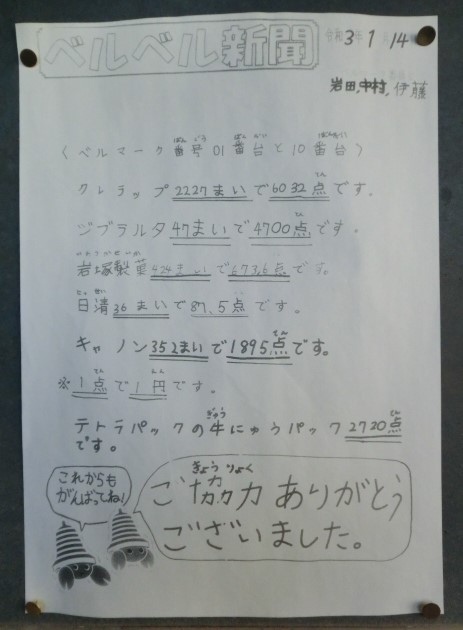 ベルベル新聞
令和3年1月14
岩田,中村,伊藤
〈ベルマーク番号01番台と10番台〉
クレラップ2227まいで6032点です.
ジブラルタ47まいで4700点です。
岩塚製菓424まいで673.6点です。
日清36まいで87.5点です。
キャノン352まいで1895点です。
※1点で1円です。
テトラパックの牛にゅうパック2720点
です。
これからも
がんばってね!
ご協力ありがとう
ございました。